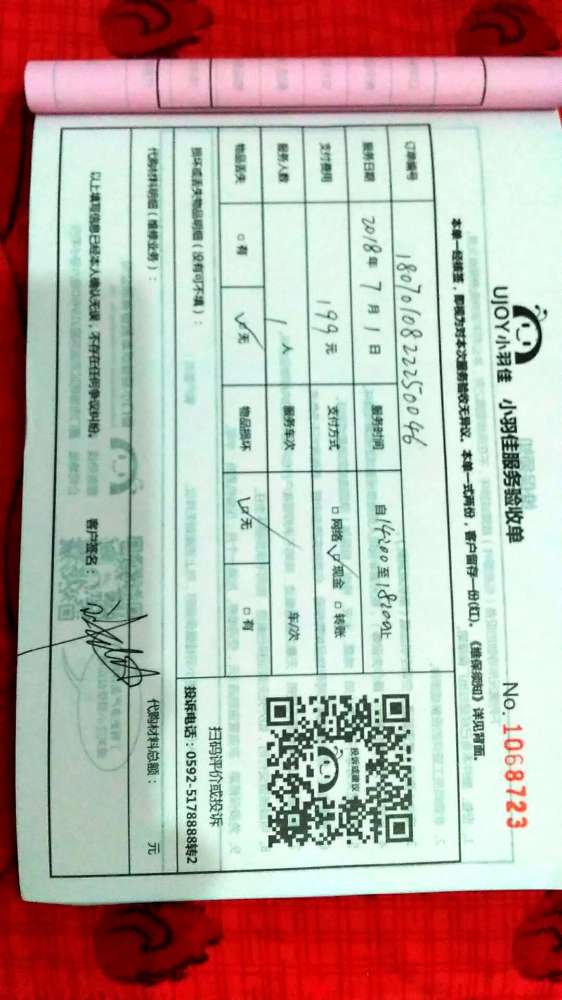 UJOY小羽佳 小羽佳服务验收单 No. 1068723
本单一经接签，即视为对本次服务验收无异议。本单一式两份，客户留存一份(红)。《维保须知》详见背面。
订单编号 1807010822250046
服务日期 2018年7月1日 服务时间 自14:00至18:00止
支付费用 199元 支付方式 □网络 ☑现金 □转账
服务人数 1人 服务车次 车/次
物品丢失 □有 ☑无 物品损坏 ☑无 □有
损坏或丢失物品明细（没有可不填）：
投诉或建议
扫码评价或投诉
投诉电话：0592-5178888转2
代购材料明细（维修业务）： 代购材料总额： 元
以上填写信息已经本人确认无误，不存在任何争议纠纷。 客户签名：